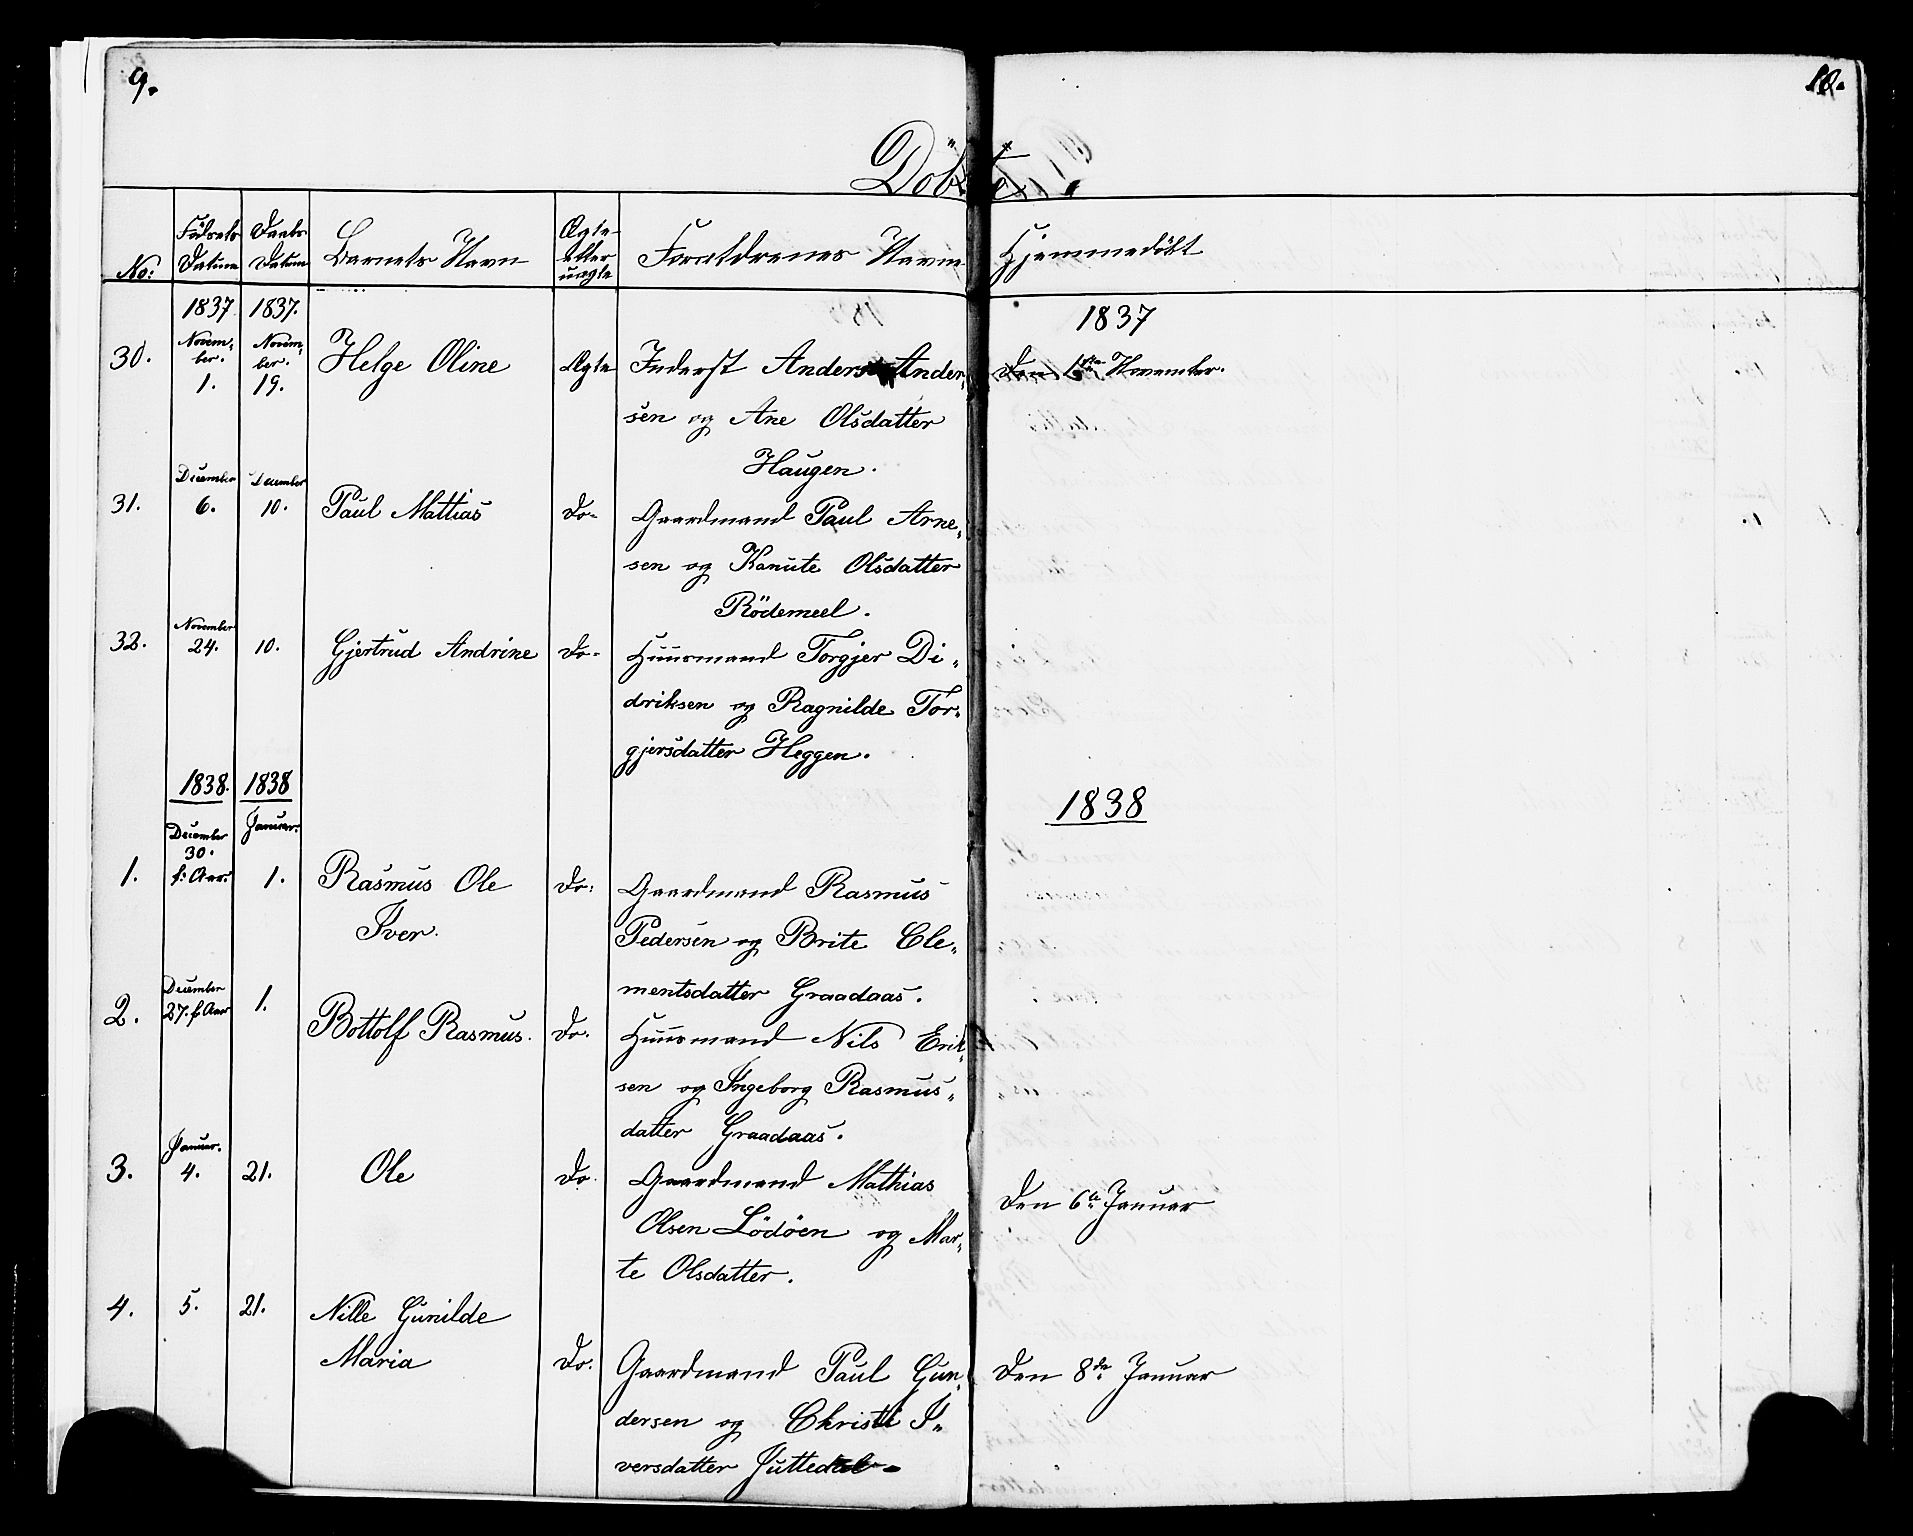 9.
10.
Döbte.
No: Födsels Datum Daabs Datum Barnets Navn Ægte eller uægte Forældrenes Navne Hjemmedöbt
1837. 1837. 1837
30. November. 1. November. 19. Helge Oline Ægte Inderst Anders Ander- Den 6te November.
sen og Ane Olsdatter
Haugen.
31. December 6. December 10. Paul Mattias Do- Gaardmand Paul Arne-
sen og Kanute Olsdatter
Rödemeel.
32. November 24. 10. Gjertrud Andrine Do- Huusmand Torgjer Di-
driksen og Ragnilde Tor-
gjersdatter Heggen.
1838. 1838 1838
1. December 30. f: Aar. Januar. 1. Rasmus Ole Do: Gaardmand Rasmus
Iver. Pedersen og Brite Cle-
mentsdatter Graadaas.
2. December 27. f. Aar 1. Bottolf Rasmus. Do. Huusmand Nils Erik-
sen og Ingeborg Rasmus-
datter Graadaas.
3. Januar. 4. 21. Ole Do. Gaardmand Mathias Den 6te Januar
Olsen Lödöen og Mar-
te Olsdatter.
4. 5. 21. Nille Gunilde
Maria Do. Gaardmand Paul Gun- Den 8de Januar
dersen og Christi I-
versdatter Juttedal.